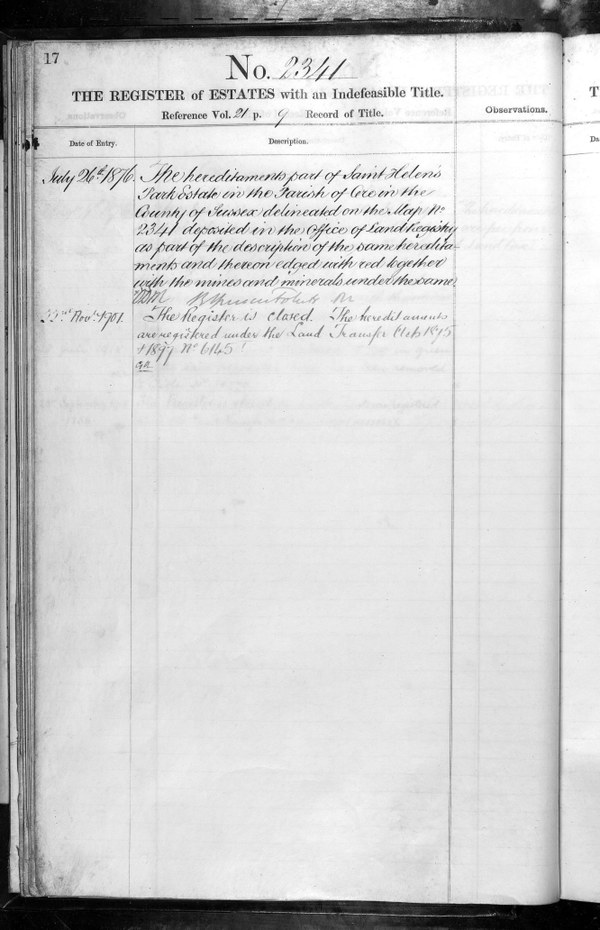 17
No. 2341
THE REGISTER of ESTATES with an Indefeasible Title.
Reference Vol. 21 p. 9 Record of Title.
Observations.
Date of Entry.
Description.
July 26th 1876.
The hereditaments part of Saint Helen's
Park Estate in the Parish of Ore in the
County of Sussex delineated on the Map No
2341 deposited in the Office of Land Registry
as part of the description of the same heredita-
ments and thereon edged with red together
with the mines and minerals under the same
Nov. 1901.
The Register is closed. The hereditaments
are registered under the Land Transfer Acts 1875
& 1897 No 6145
T
Da